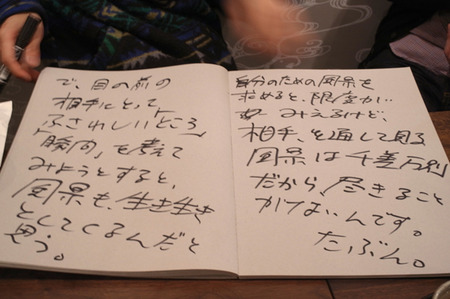 で、目の前の
相手にとって
「ふさわしいところ」
「瞬間」を考えて
みようとすると、
風景も、生き生き
としてくるんだと
思う。
自分のための風景を
求めると、限度が…
みえるけど、
相手、を通して見る
風景は千差万別
だから、尽きること
がないんです。
たぶん。